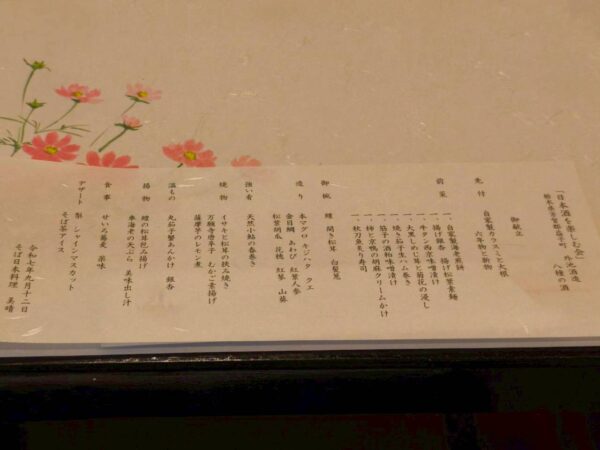 「日本酒を楽しむ会」
栃木県芳賀郡益子町 外池酒造
八種の酒
御献立
先付 自家製カラスミと大根
六年物と新物
前菜 一、自家製海老煎餅
一、揚げ銀杏 揚げ松葉素麺
一、牛タン西京味噌漬け
一、焼き茄子生ハム巻き
一、大黒しめじ茸と菊花の浸し
一、筋子の酒粕味噌漬け
一、柿と京鴨の胡麻クリームかけ
一、秋刀魚炙り寿司
御椀 鱧 開き松茸 白髪葱
造り 本マグロ キジハタ クエ
金目鯛 あわび 紅葉人参
松葉胡瓜 花穂 紅蓼 山葵
強い肴 天然小鮎の春巻き
焼物 イサキと松茸の挟み焼き
万願寺唐辛子 むかご素揚げ
薩摩芋のレモン煮
温もの 丸茄子蟹あんかけ 銀杏
揚物 鱧の松茸包み揚げ
車海老の天ぷら 美味出し汁
食事 せいろ蕎麦 薬味
デザート 梨 シャインマスカット
そば茶アイス
令和七年九月十二日
そば日本料理 美晴